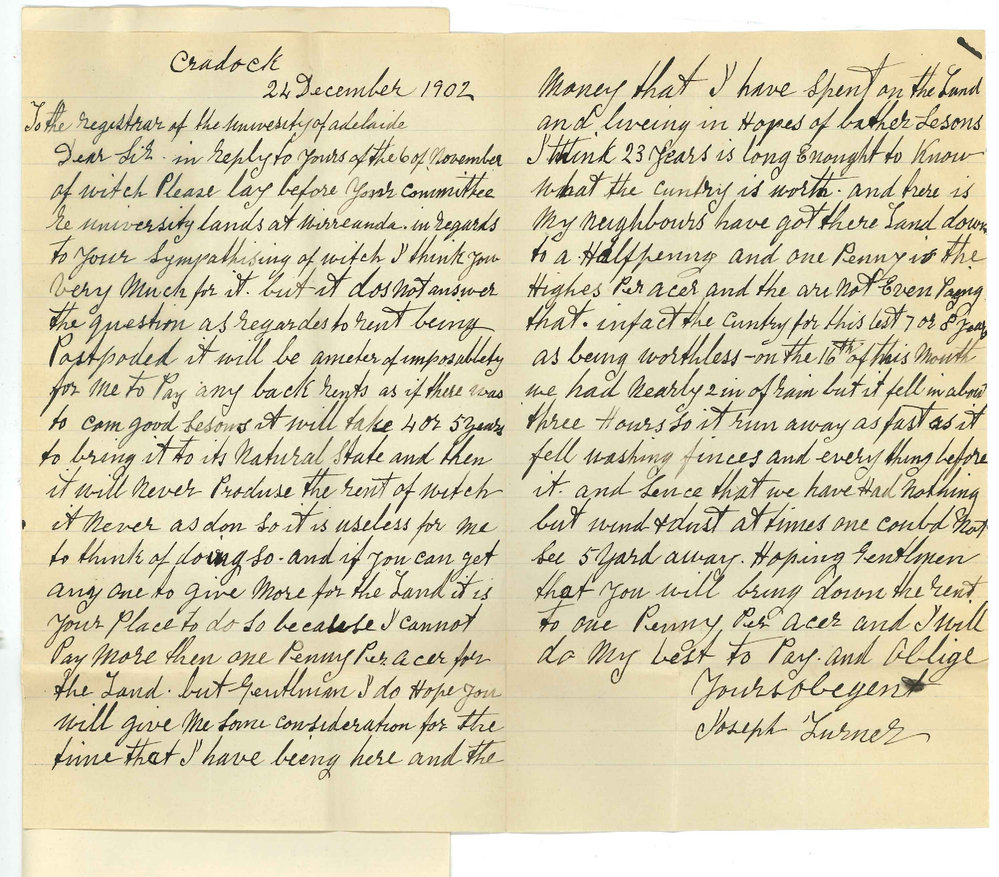 Cradock
24 December 1902
To the registrar of the university of adelaide
Dear Sir. in reply to yours of the 6 of November
of witch Please lay before Your Committee
re university lands at Wirreanda. in regards
to Your Sympathising of witch I think you
very Much for it. but it dos Not answer
the question as regardes to rent being
Postpoded it will be a meter of imposablety
for Me to Pay any back rents as if there was
to com good Sesons it will take 4 or 5 years
to bring it to its Natural State and then
it will Never Produse the rent of witch
it Never as don so it is useless for me
to think of doing so. and if you can get
any one to give More for the Land it is
Your Place to do so because I cannot
Pay More then one Penny Per acer for
the Land. but Gentlman I do Hope you
will give Me some consideration for the
time that I have beeng here and the
Money that I have Spent on the Land
and liveing in Hopes of bather Sesons
I think 23 Years is long Enought to Know
what the cuntry is worth. and here is
My neighbours have got there Land down
to a Halfpenny and one Penny is the
Highes Per acer and the are Not Even Paying
that. infact the cuntry for this last 7 or 8 Years
as being worthless - on the 16th of this Month
we had Nearly 2 in of rain but it fell in about
three Hours So it run away as fast as it
fell washing finces and every thing before
it. and Sence that we have Had Nothing
but wind & dust at times one coubd Not
See 5 Yard away. Hoping Gentlmen
that You will bring down the rent
to one Penny Per Acer and I will
do My best to Pay. and Oblige
Yours obegent
Joseph Turner